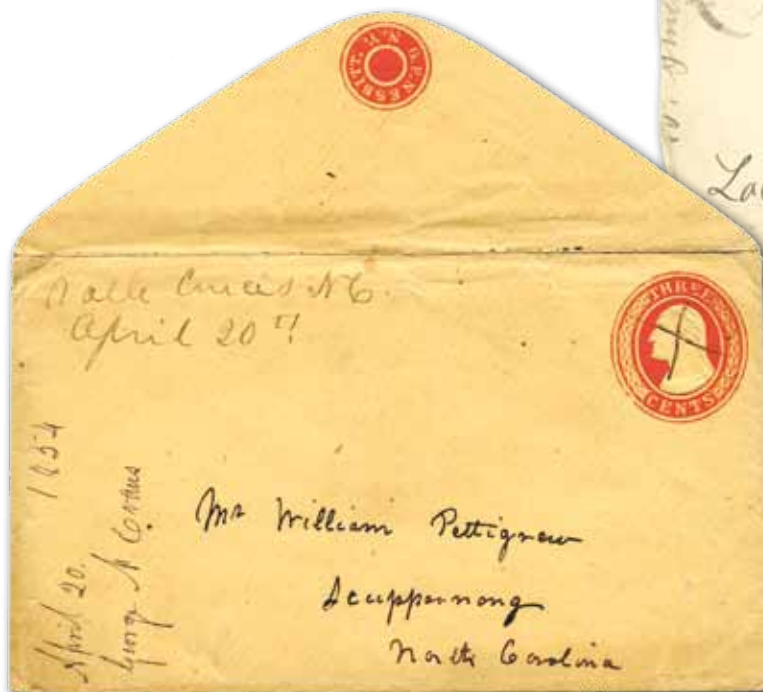 G.F. NESBITT.
N.Y.
Valle Crucis N C.
April 20th
THREE
CENTS
April 20. 1854
George N Evans
Mr William Pettigrew
Scuppernong
North Carolina